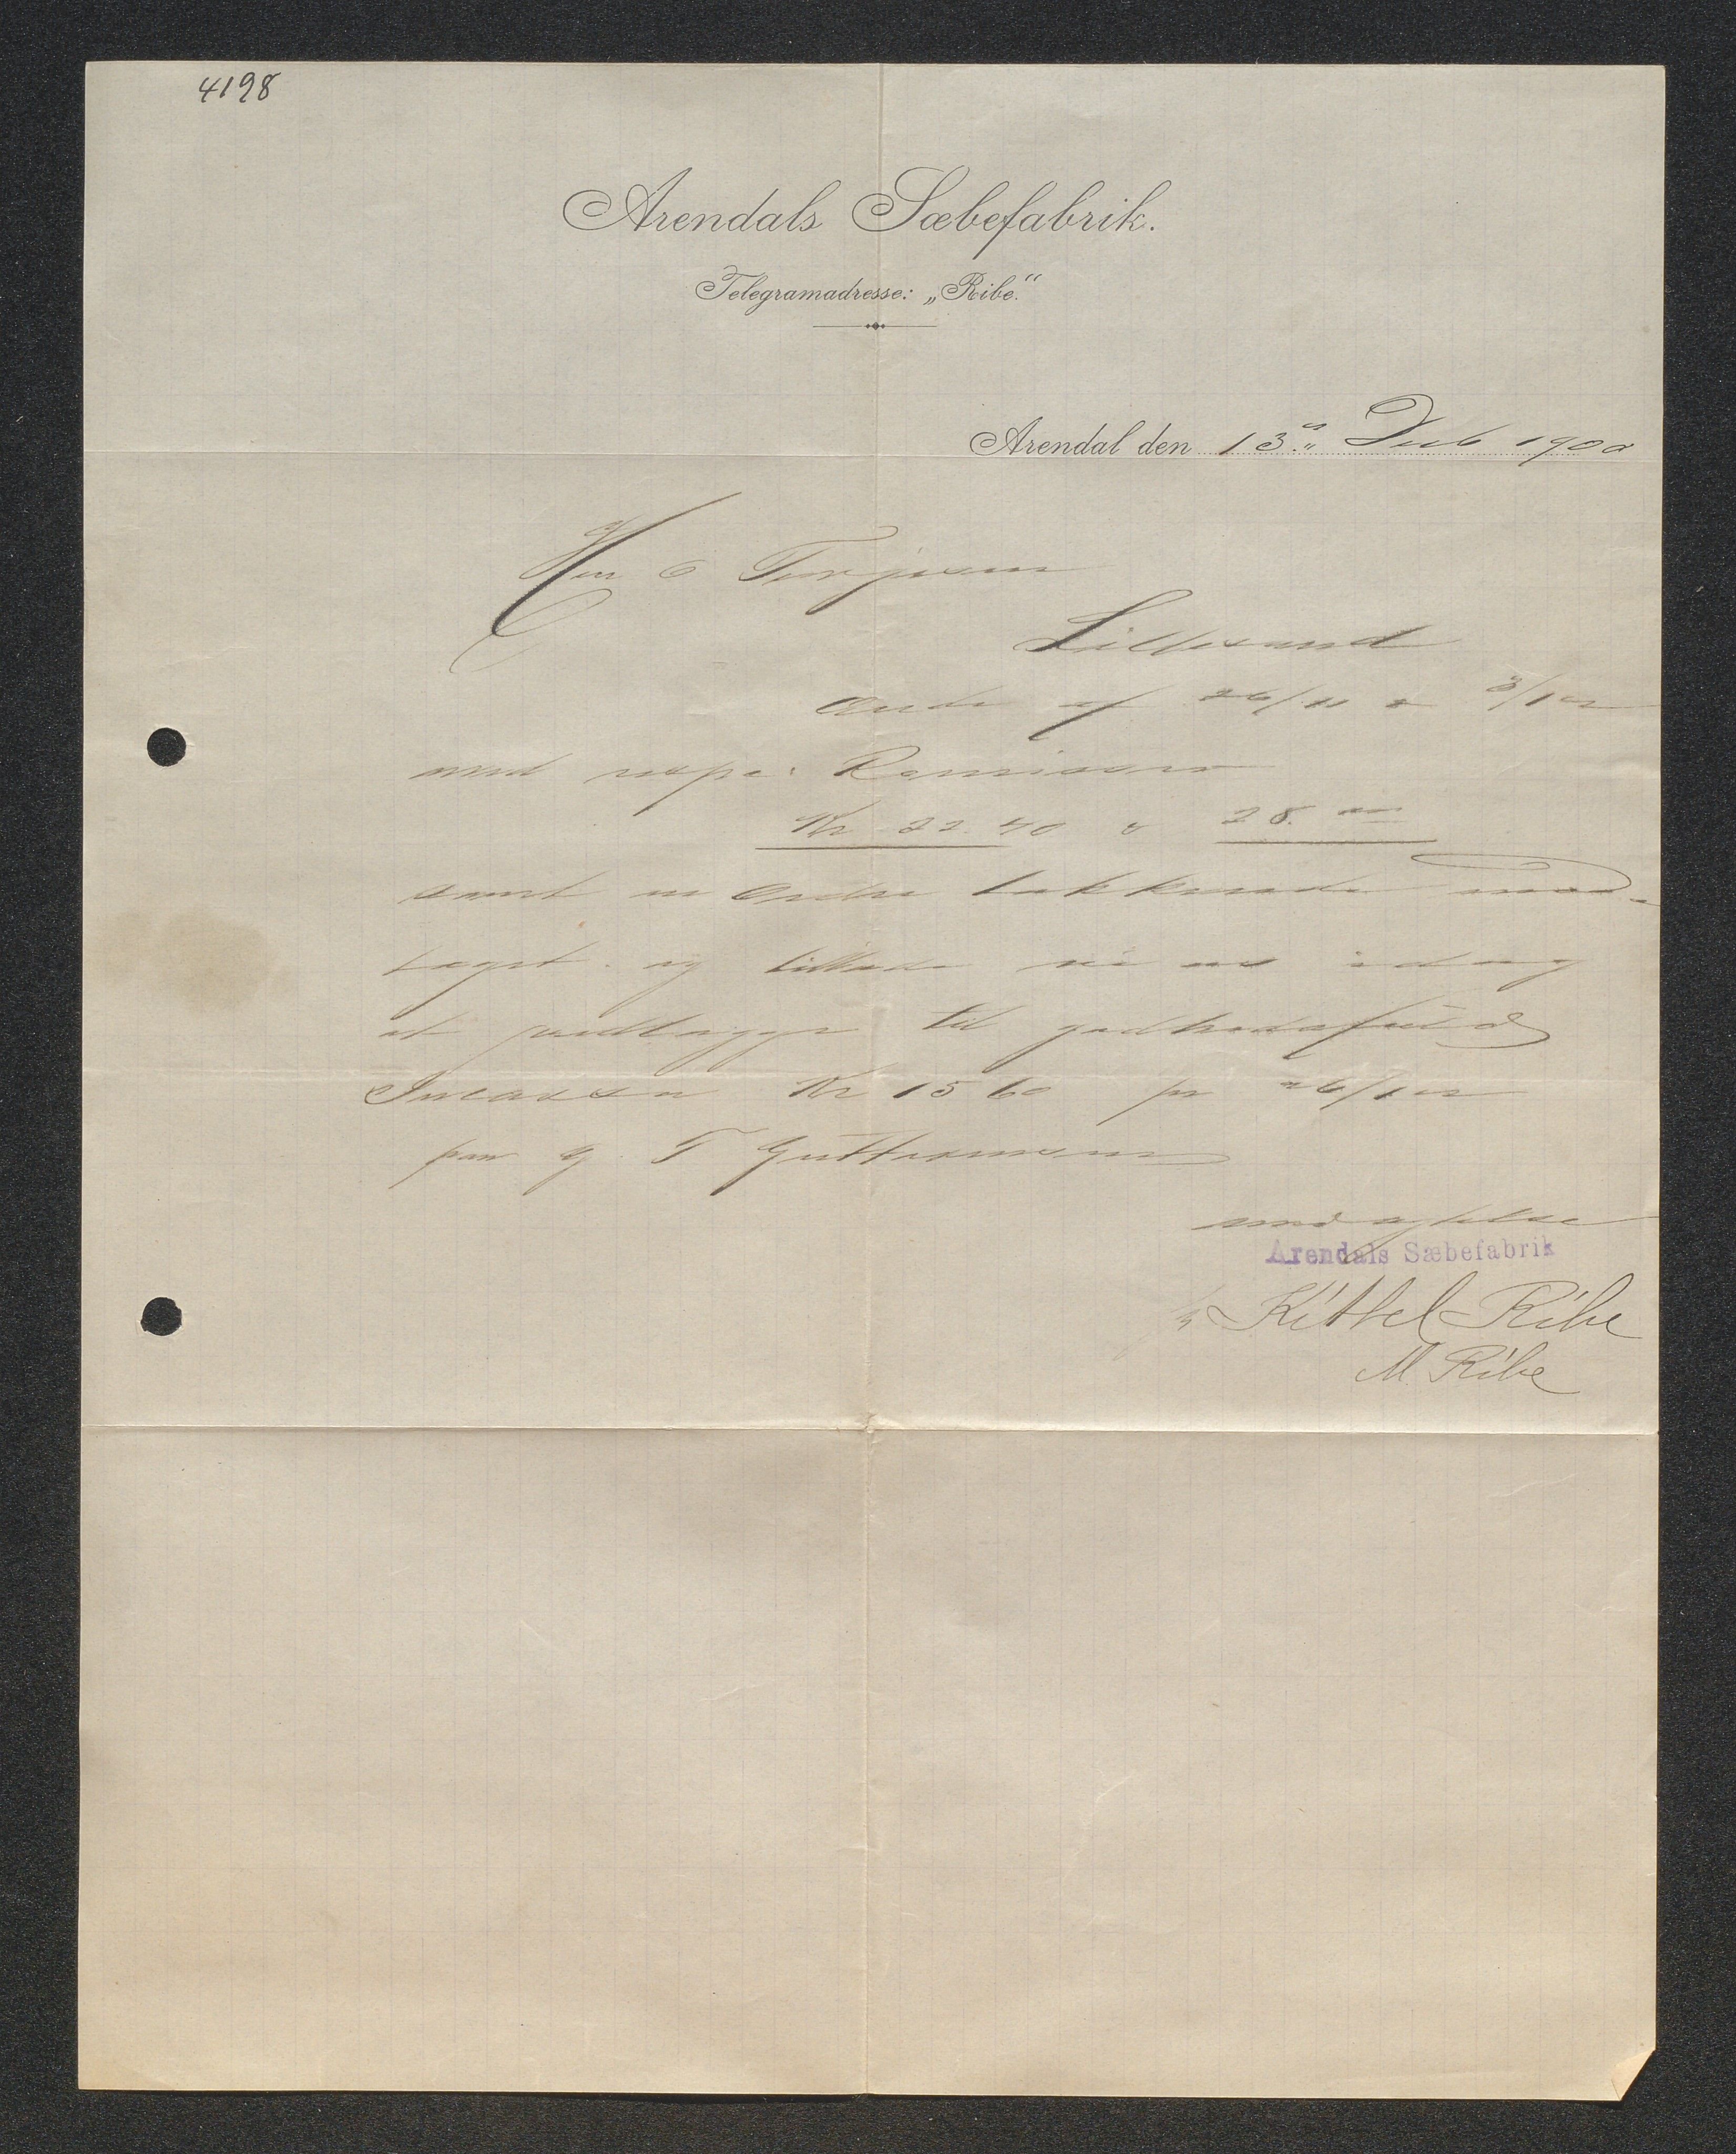 4198
Arendals Sæbefabrik.
Telegramadresse: „Ribe.“
Arendal den 13de Feb 1900
Herr O Terjesen
Lillesand
af 26/11 & 3/1 er
med resp. Remisser
Kr 22.40 & 28.
samt en Ordre takkende mod-
taget. og tillader vi os idag
at vedlægge til godhedsfuld
Incasso Kr 15 60 pr 26/1 er
paa G. T Guttormsen
med agtelse
Arendals Sæbefabrik
Kittel Ribe
M. Ribe